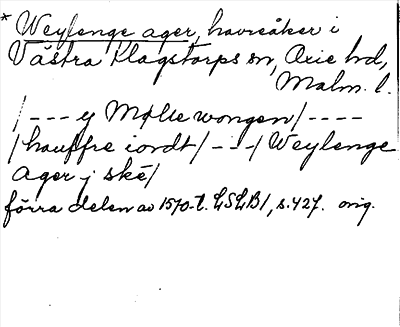 * Weylenge ager, havreåker i
Västra Klagstorps sn, Oxie hd,
Malm. l.
/--- y Mølle wongen/----
/hauffre iordt/---/Weylenge
Ager j ske/
förra delen av 1570-t. LSLB1, s. 427. orig.